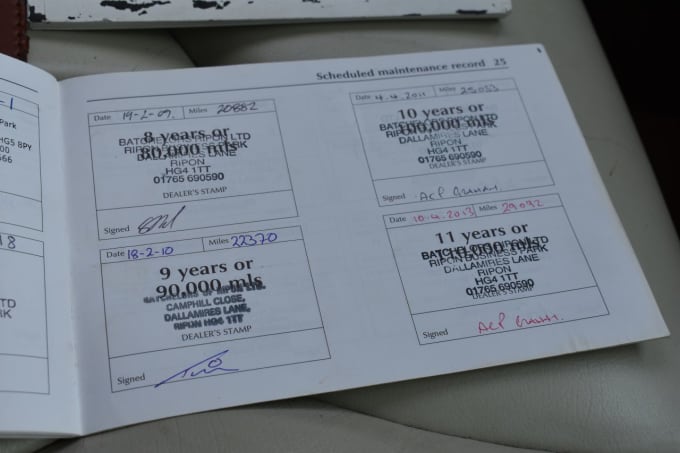 Scheduled maintenance record 25
-1
Park
HG5 8PY
00
566
18
LTD
RK
Date 19-2-09. Miles 20882
8 years or
80,000 mls
BATCHELORS RIPON LTD
RIPON BUSINESS PARK
DALLAMIRES LANE
RIPON
HG4 1TT
01765 690590
DEALER'S STAMP
Signed
Date 18-2-10 Miles 22370
9 years or
90,000 mls
BATCHELORS OF RIPON LTD.
CAMPHILL CLOSE,
DALLAMIRES LANE,
RIPON HG4 1TT
DEALER'S STAMP
Signed
Date 4.4.2011 Miles 25053
10 years or
100,000 mls
BATCHELORS RIPON LTD
RIPON BUSINESS PARK
DALLAMIRES LANE
RIPON
HG4 1TT
01765 690590
DEALER'S STAMP
Signed ACP
Date 10.4.2013 Miles 29092
11 years or
110,000 mls
BATCHELORS RIPON LTD
RIPON BUSINESS PARK
DALLAMIRES LANE
RIPON
HG4 1TT
01765 690590
DEALER'S STAMP
Signed ACP